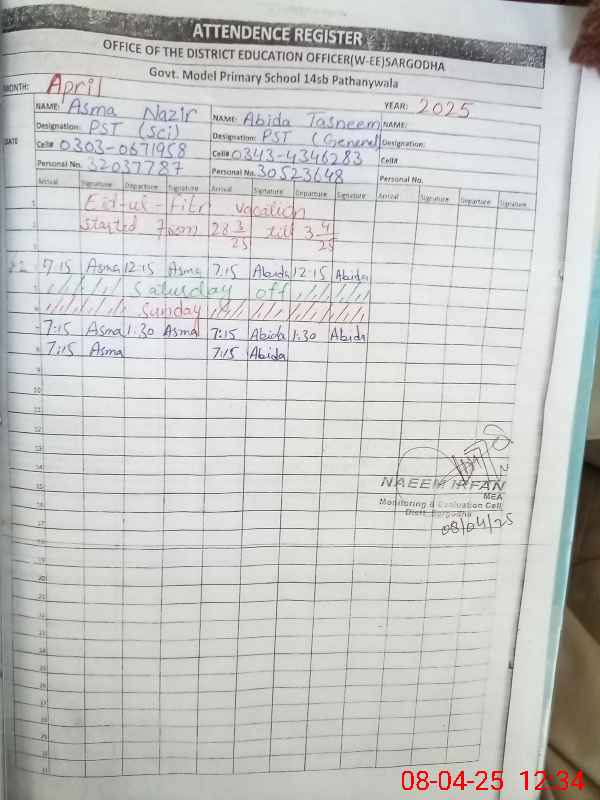 ATTENDENCE REGISTER
OFFICE OF THE DISTRICT EDUCATION OFFICER(W-EE)SARGODHA
Govt. Model Primary School 14sb Pathanywala
MONTH: April YEAR: 2025
NAME: Asma Nazir NAME: Abida Tasneem NAME:
Designation: PST (Sci) Designation: PST (General) Designation:
DATE Cell# 0303-0671958 Cell# 0343-4346283 Cell#
Personal No. 32037787 Personal No. 30523648 Personal No.
Arrival Signature Departure Signature Arrival Signature Departure Signature Arrival Signature Departure Signature
1 Eid-ul-Fitr vacation
2 Started from 28 3/25 till 3 4/25
3
7:15 Asma 12:15 Asma 7:15 Abida 12:15 Abida
Saturday off
6 Sunday
7 7:15 Asma 1:30 Asma 7:15 Abida 1:30 Abida
8 7:15 Asma 7:15 Abida
9
10
11
12
13
14
15
NAEEM IRFAN
MEA
16
Monitoring & Evaluation Cell
17
Distt. Sargodha
08/04/25
18
19
20
21
22
23
24
25
26
27
28
29
30
31
08-04-25 12:34